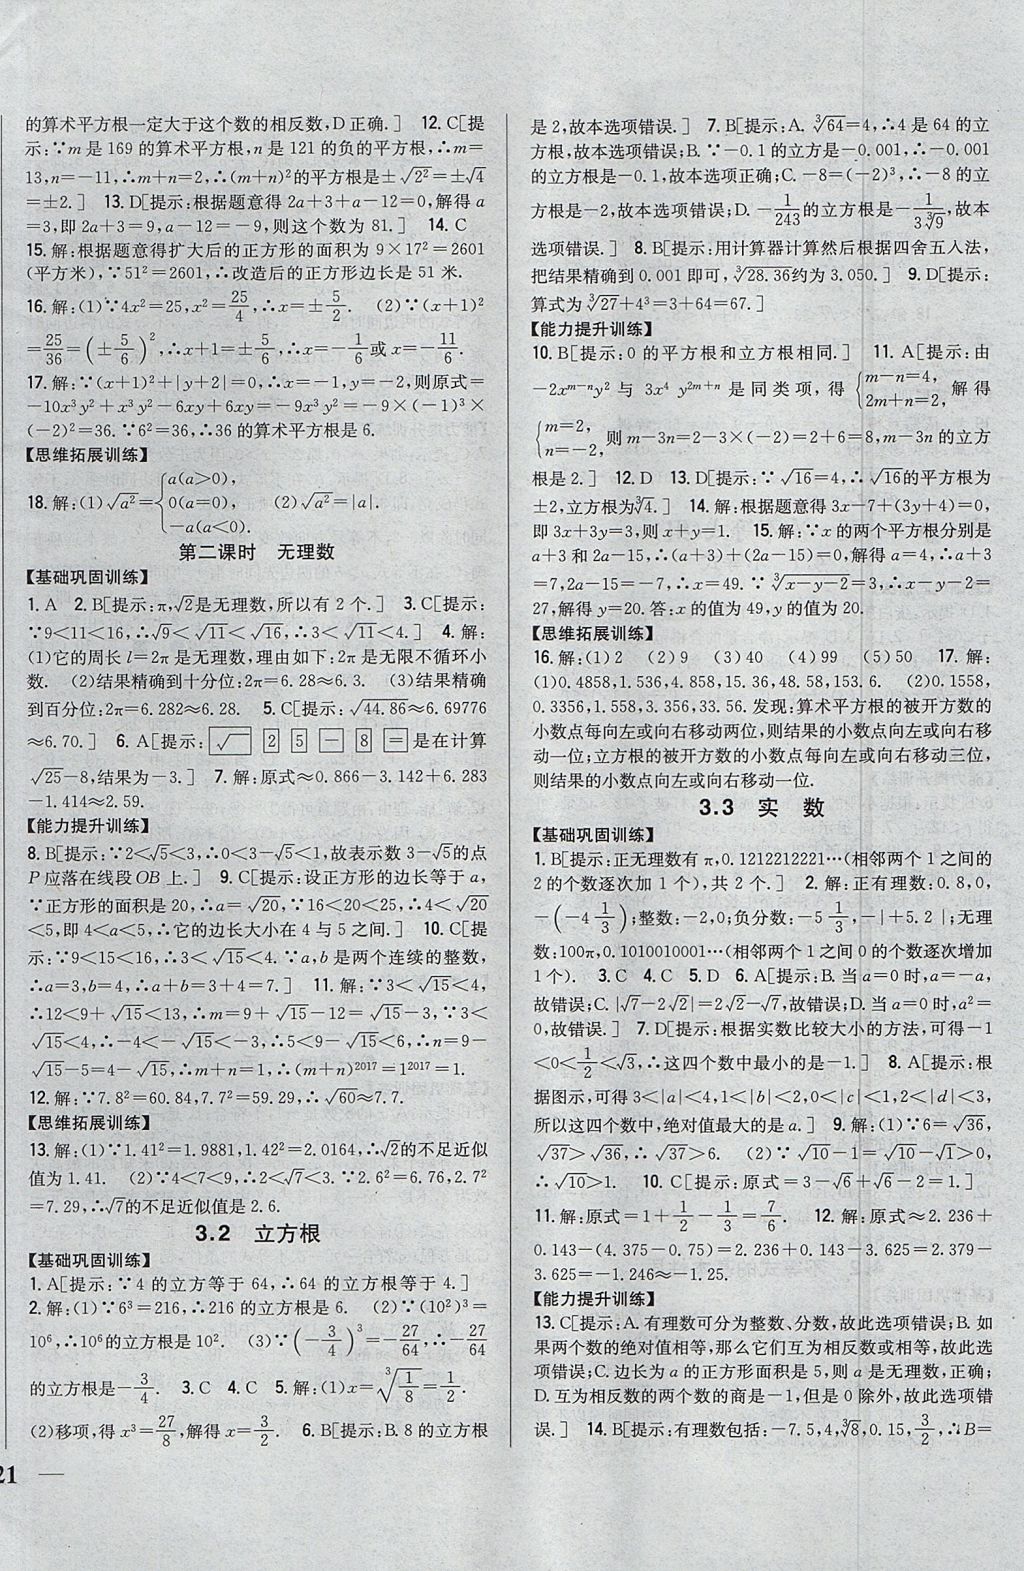 的算术平方根一定大于这个数的相反数,D正确.] 12. C[提
示:∵m是169的算术平方根,n是121的负的平方根,∴m=
13,n=-11,∴m+n=2,∴(m+n)²的平方根是±√2²=±√4
=±2.] 13. D[提示:根据题意得2a+3+a-12=0,解得a
=3,即2a+3=9,a-12=-9,则这个数为81.] 14. C
15.解:根据题意得扩大后的正方形的面积为9×17²=2601
(平方米),∵51²=2601,∴改造后的正方形边长是51米.
16.解:(1)∵4x²=25,x²=25/4,∴x=±5/2. (2)∵(x+1)²
=25/36=(±5/6)²,∴x+1=±5/6,∴x=-1/6或x=-11/6.
17.解:∵(x+1)²+|y+2|=0,∴x=-1,y=-2,则原式=
-10x³y²+x³y²-6xy+6xy=-9x³y²=-9×(-1)³×
(-2)²=36.∵6²=36,∴36的算术平方根是6.
【思维拓展训练】
18.解:(1)√a²={a(a>0), 0(a=0), -a(a<0). (2)√a²=|a|.
第二课时 无理数
【基础巩固训练】
1. A 2. B[提示:π,√2是无理数,所以有2个.] 3. C[提示:
∵9<11<16,∴√9<√11<√16,∴3<√11<4.] 4.解:
(1)它的周长l=2π是无理数,理由如下:2π是无限不循环小
数. (2)结果精确到十分位:2π≈6.28≈6.3. (3)结果精确
到百分位:2π≈6.282≈6.28. 5. C[提示:√44.86≈6.69776
≈6.70.] 6. A[提示:√ 2 5 - 8 =是在计算
√25-8,结果为-3.] 7.解:原式≈0.866-3.142+6.283
-1.414≈2.59.
【能力提升训练】
8. B[提示:∵2<√5<3,∴0<3-√5<1,故表示数3-√5的点
P应落在线段OB上.] 9. C[提示:设正方形的边长等于a,
∵正方形的面积是20,∴a=√20,∵16<20<25,∴4<√20
<5,即4<a<5,∴它的边长大小在4与5之间.] 10. C[提
示:∵9<15<16,∴3<√15<4.∵a,b是两个连续的整数,
∴a=3,b=4,∴a+b=3+4=7.] 11.解:∵3<√15<4,
∴12<9+√15<13,∴m=9+√15-12=√15-3,∵3<
√15<4,∴-4<-√15<-3,∴5<9-√15<6,∴n=9-
√15-5=4-√15,∴m+n=1,∴(m+n)²⁰¹⁷=1²⁰¹⁷=1.
12.解:∵7.8²=60.84,7.7²=59.29,∴√60≈7.7.
【思维拓展训练】
13.解:(1)∵1.41²=1.9881,1.42²=2.0164,∴√2的不足近似
值为1.41. (2)∵4<7<9,∴2<√7<3.∵2.6²=6.76,2.7²
=7.29,∴√7的不足近似值是2.6.
3.2 立方根
【基础巩固训练】
1. A[提示:∵4的立方等于64,∴64的立方根等于4.]
2.解:(1)∵6³=216,∴216的立方根是6. (2)∵(10²)³=
10⁶,∴10⁶的立方根是10². (3)∵(-3/4)³=-27/64,∴-27/64
的立方根是-3/4. 3. C 4. C 5.解:(1)x=∛(1/8)=1/2.
(2)移项,得x³=27/8,解得x=3/2. 6. B[提示:B. 8的立方根
21
是2,故本选项错误.] 7. B[提示:A. ∛64=4,∴4是64的立
方根,故本选项错误;B.∵-0.1的立方是-0.001,∴-0.001
的立方根是-0.1,故本选项正确;C.-8=(-2)³,∴-8的立
方根是-2,故本选项错误;D.-1/243的立方根是-1/(3∛9),故本
选项错误.] 8. B[提示:用计算器计算然后根据四舍五入法,
把结果精确到0.001即可,∛28.36约为3.050.] 9. D[提示:
算式为∛27+4³=3+64=67.]
【能力提升训练】
10. B[提示:0的平方根和立方根相同.] 11. A[提示:由
-2xᵐ⁻ⁿy²与3x⁴y²ᵐ⁺ⁿ是同类项,得{m-n=4, 2m+n=2, 解得
{m=2, n=-2, 则m-3n=2-3×(-2)=2+6=8,m-3n的立方
根是2.] 12. D 13. D[提示:∵√16=4,∴√16的平方根为
±2,立方根为∛4.] 14.解:根据题意得3x-7+(3y+4)=0,
即3x+3y=3,则x+y=1. 15.解:∵x的两个平方根分别是
a+3和2a-15,∴(a+3)+(2a-15)=0,解得a=4,∴a+3
=7,2a-15=-7,∴x=49.∵∛(x-y-2)=3,∴x-y-2=
27,解得y=20.答:x的值为49,y的值为20.
【思维拓展训练】
16.解:(1)2 (2)9 (3)40 (4)99 (5)50 17.解:
(1)0.4858,1.536,4.858,15.36,48.58,153.6. (2)0.1558,
0.3356,1.558,3.356,33.56.发现:算术平方根的被开方数的
小数点每向左或向右移动两位,则结果的小数点向左或向右移
动一位;立方根的被开方数的小数点每向左或向右移动三位,
则结果的小数点向左或向右移动一位.
3.3 实 数
【基础巩固训练】
1. B[提示:正无理数有π,0.1212212221…(相邻两个1之间的
2的个数逐次加1个),共2个.] 2.解:正有理数:0.8,0,
-(-4 1/3);整数:-2,0;负分数:-5 1/3,-|+5.2|;无理
数:100π,0.1010010001…(相邻两个1之间0的个数逐次增加
1个). 3. C 4. C 5. D 6. A[提示:B.当a=0时,a=-a,
故错误;C.|√7-2√2|=2√2-√7,故错误;D.当a=0时,a²=
0,故错误.] 7. D[提示:根据实数比较大小的方法,可得-1
<0<1/2<√3,∴这四个数中最小的是-1.] 8. A[提示:根
据图示,可得3<|a|<4,1<|b|<2,0<|c|<1,2<|d|<3,
所以这四个数中,绝对值最大的是a.] 9.解:(1)∵6=√36,
√37>√36,∴√37>6. (2)∵√10-1=√10-√1>0,
∴√10>1. 10. C[提示:原式=3-√6+√6-2=1.]
11.解:原式=1+1/2-1/3=7/6. 12.解:原式≈2.236+
0.57-(4.375-0.75)=2.236+0.57-3.625=2.379-
3.625=-1.246≈-1.25.
【能力提升训练】
13. C[提示:A.有理数可分为整数、分数,故此选项错误;B.如
果两个数的绝对值相等,那么它们互为相反数或相等,故此选
项错误;C.边长为a的正方形面积是5,则a是无理数,正确;
D.互为相反数的两个数的商是-1,但是0除外,故此选项错
误.] 14. B[提示:有理数包括:-7.5,4,∛8,0.15,3/2,∴B=